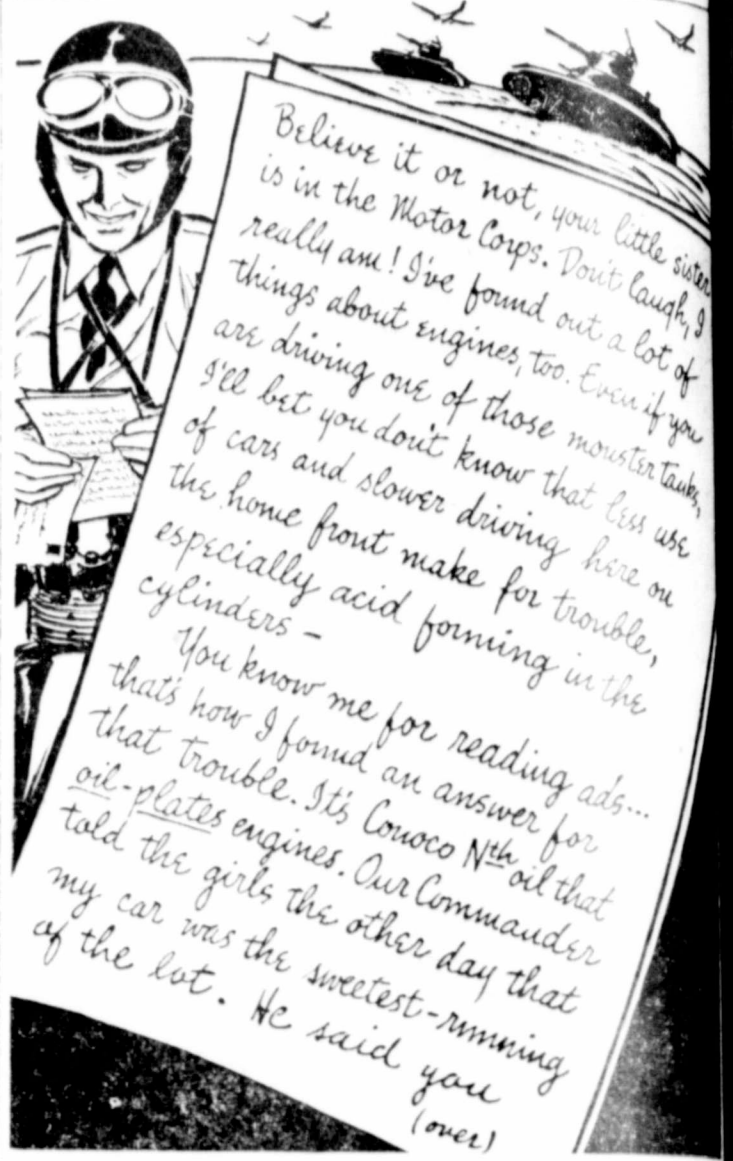 Believe it or not, your little sister
is in the Motor Corps. Don't laugh, I
really am! I've found out a lot of
things about engines, too. Even if you
are driving one of those monster tanks,
I'll bet you don't know that less use
of cars and slower driving here on
the home front make for trouble,
especially acid forming in the
cylinders –
You know me for reading ads...
that's how I found an answer for
that trouble. It's Conoco Nth oil that
oil-plates engines. Our Commander
told the girls the other day that
my car was the sweetest-running
of the lot. He said you
(over)